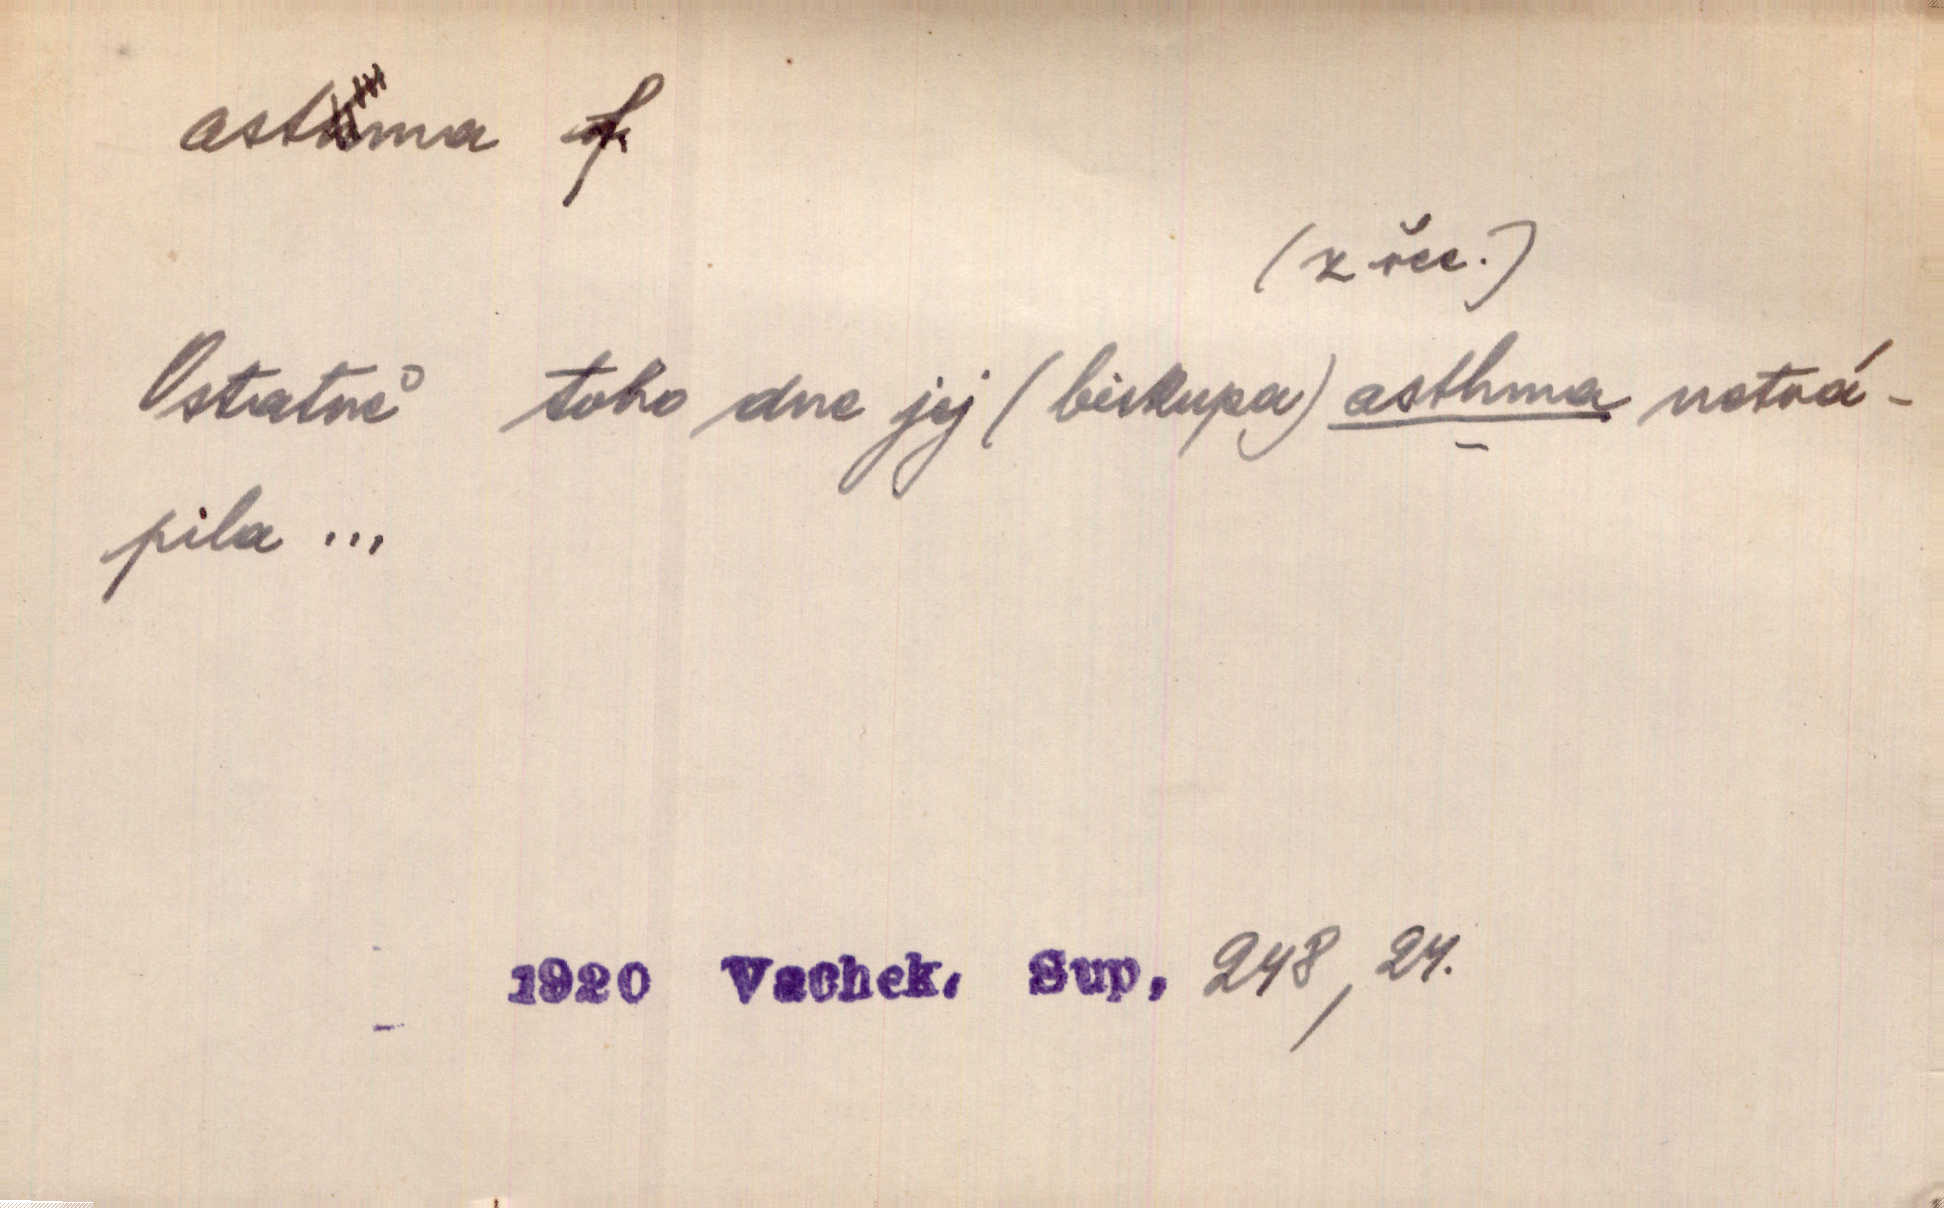 astma f
(z řec.)
Ostatně toho dne jej (biskupa) asthma netrá-
pila ...
1920 Vachek. Sup, 248, 24.